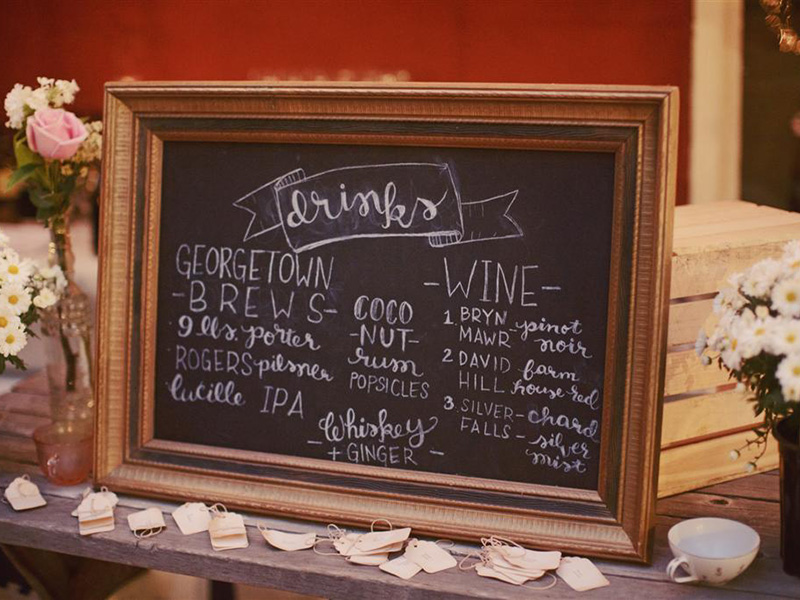 drinks
GEORGETOWN
-BREWS-
9 lbs. porter
ROGERS pilsner
lucille IPA
COCO
-NUT-
rum
POPSICLES
Whiskey
-+ GINGER-
-WINE-
1. BRYN MAWR - pinot noir
2 DAVID HILL farm house red
3. SILVER FALLS - chard - silver mist